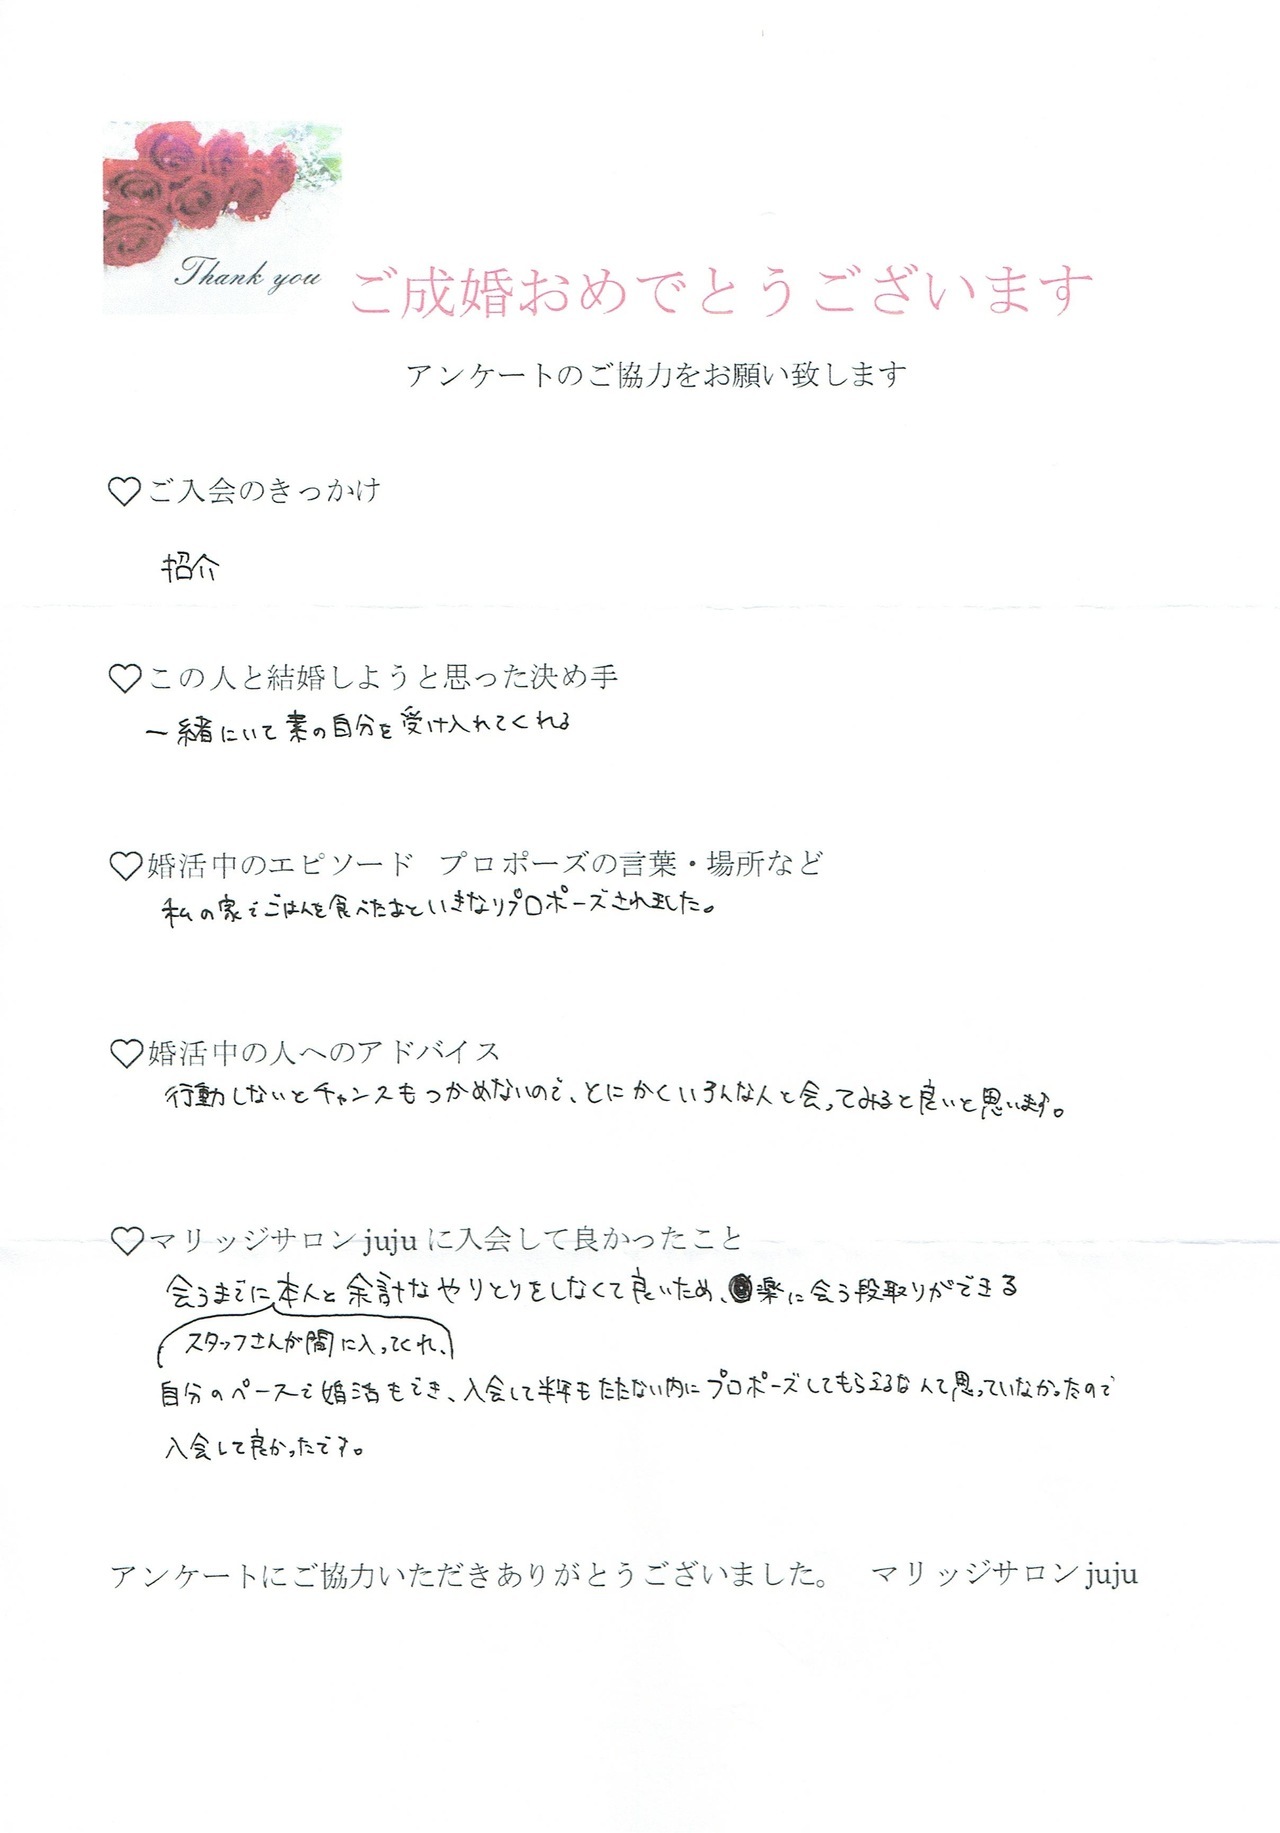 Thank you
ご成婚おめでとうございます
アンケートのご協力をお願い致します
♡ご入会のきっかけ
招介
♡この人と結婚しようと思った決め手
一緒にいて素の自分を受け入れてくれる
♡婚活中のエピソード プロポーズの言葉・場所など
私の家でごはんを食べたあといきなりプロポーズされました。
♡婚活中の人へのアドバイス
行動しないとチャンスもつかめないので、とにかくいろんな人と会ってみると良いと思います。
♡マリッジサロンjujuに入会して良かったこと
会うまでに本人と余計なやりとりをしなくて良いため、楽に会う段取りができる
スタッフさんが間に入ってくれ、
自分のペースで婚活もでき、入会して半年もたたない内にプロポーズしてもらえるなんて思っていなかったので
入会して良かったです。
アンケートにご協力いただきありがとうございました。 マリッジサロンjuju